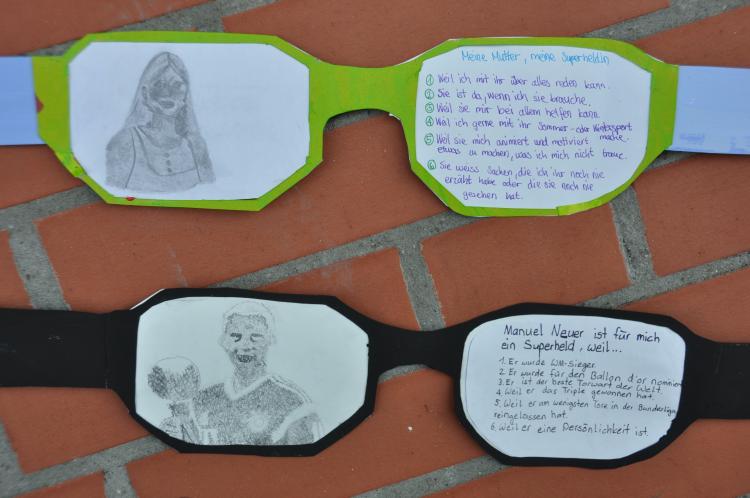 Meine Mutter, meine Superheldin
1 Weil ich mit ihr über alles reden kann.
2 Sie ist da, wenn ich sie brauche.
3 Weil sie mir bei allem helfen kann.
4 Weil ich gerne mit ihr Sommer- oder Wintersport mache.
5 Weil sie mich animiert und motiviert
etwas zu machen, was ich mich nicht traue.
6 Sie weiss Sachen, die ich ihr noch nie
erzählt habe oder die sie noch nie
gesehen hat.
Manuel Neuer ist für mich
ein Superheld, weil...
1. Er wurde WM-Sieger.
2. Er wurde für den Ballon d'or nominiert
3. Er ist der beste Torwart der Welt.
4. Weil er das Triple gewonnen hat.
5. Weil er am wenigsten Tore in der Bundesliga
reingelassen hat.
6. Weil er eine Persönlichkeit ist.